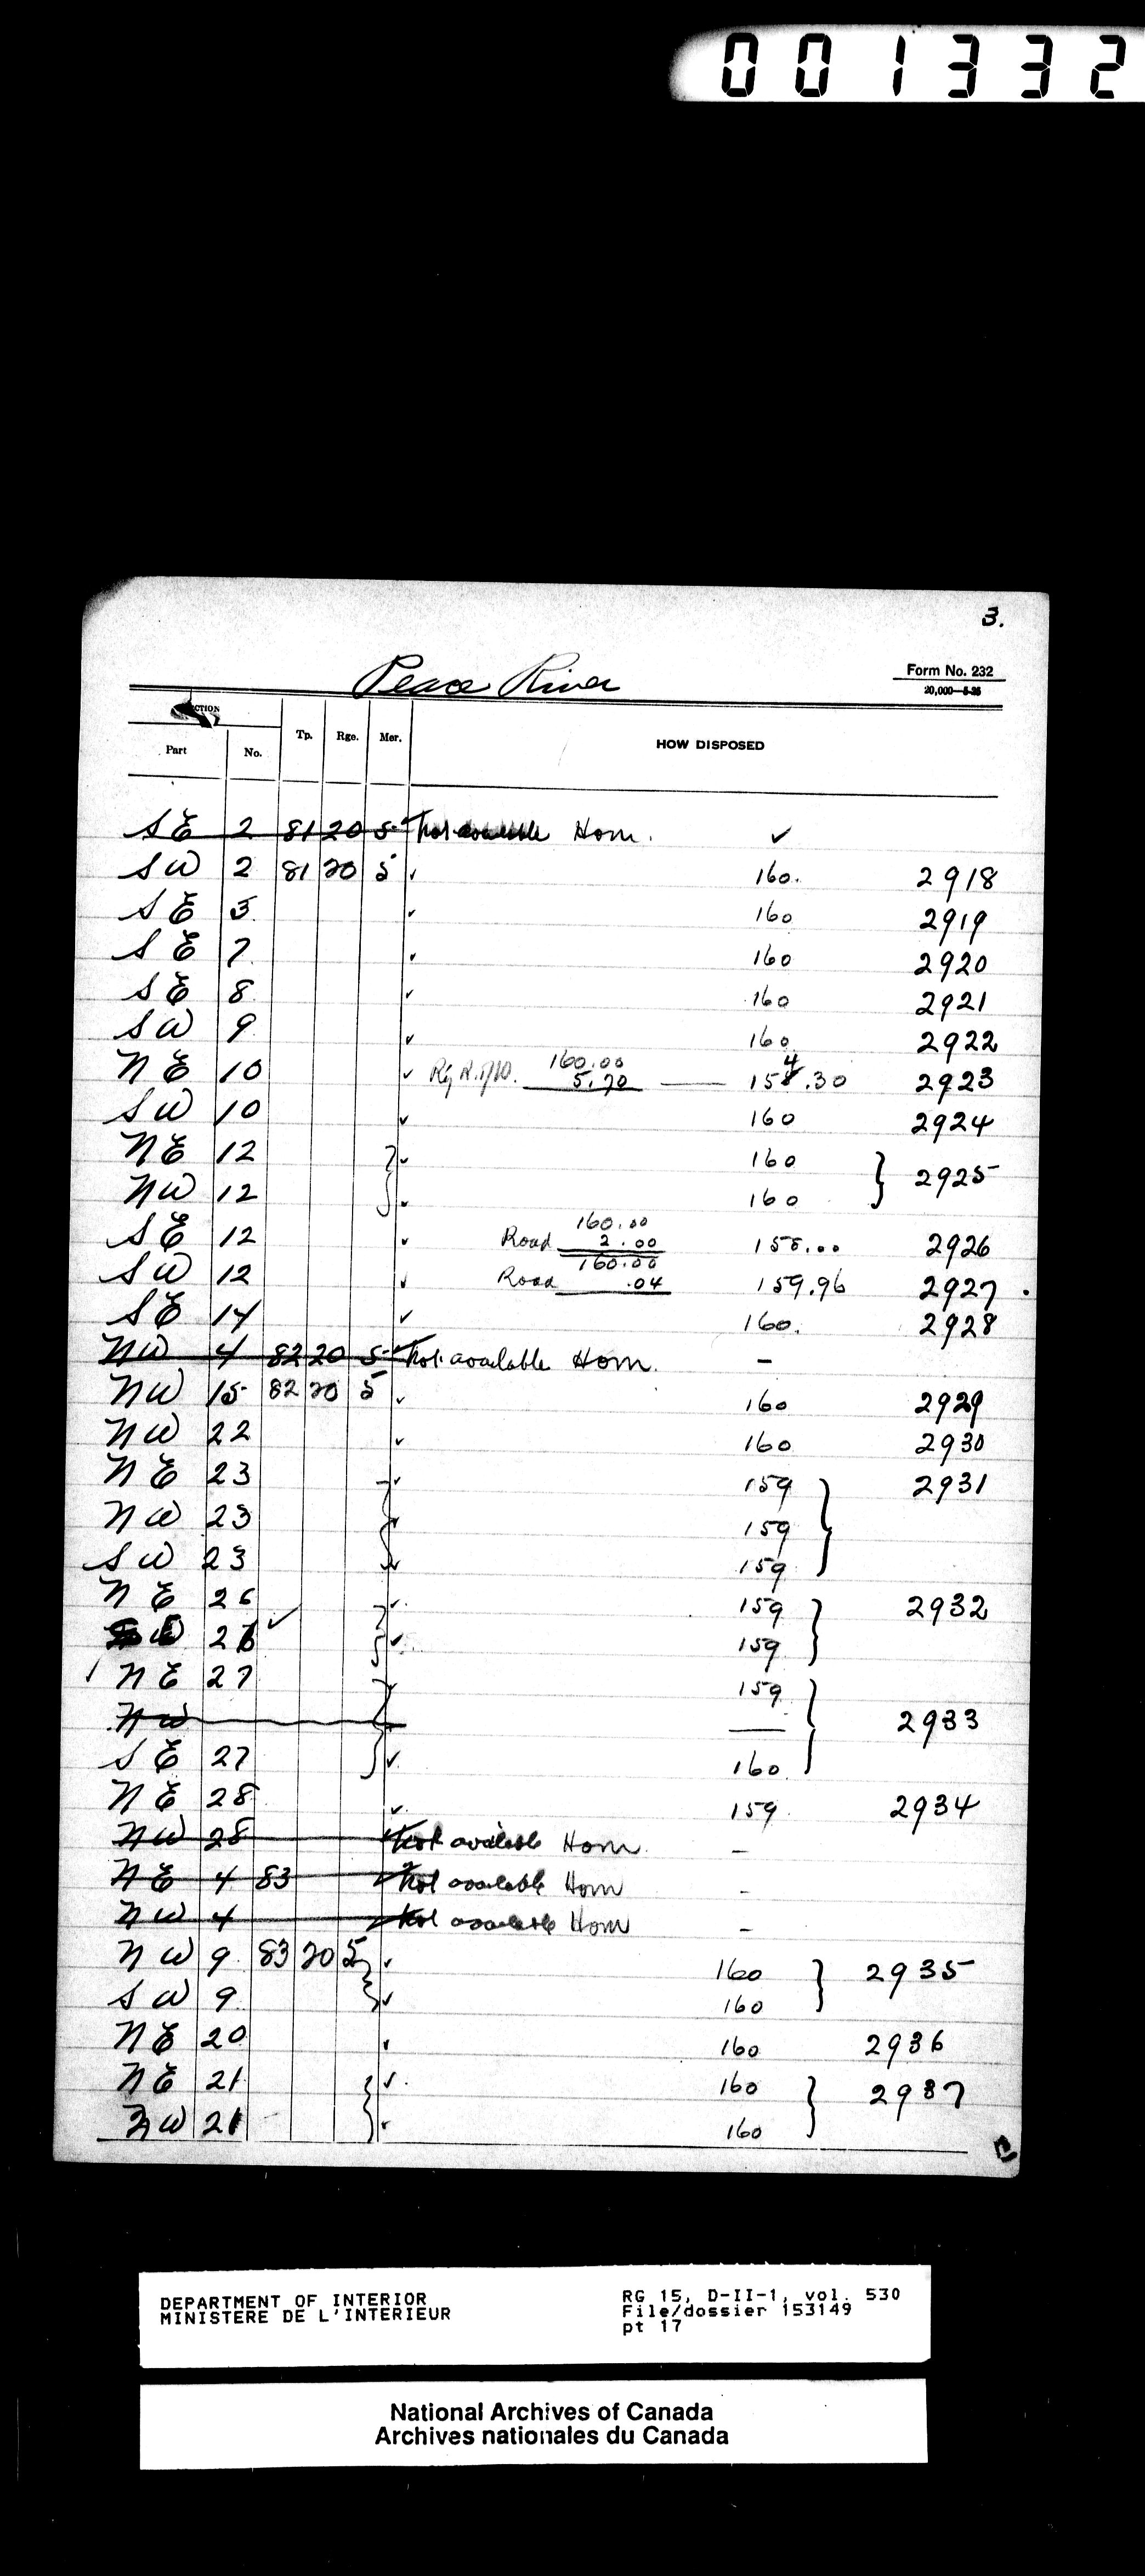 001332
3.
Peace River
Form No. 232
20,000—5-26
SECTION
Part No. Tp. Rge. Mer. HOW DISPOSED
SE 2 81 20 5 Not available Hom. ✓
SW 2 81 20 5 ✓ 160. 2918
SE 5 ✓ 160 2919
SE 7 ✓ 160 2920
SE 8 ✓ 160 2921
SW 9 ✓ 160 2922
160.00
NE 10 ✓ 5.70 — 154.30 2923
SW 10 ✓ 160 2924
NE 12 ✓ 160
NW 12 ✓ 160 } 2925
160.00
SE 12 ✓ Road 2.00 158.00 2926
160.00
SW 12 ✓ Road .04 159.96 2927
SE 14 ✓ 160. 2928
NW 4 82 20 5 Not available Hom. –
NW 15 82 20 5 ✓ 160 2929
NW 22 ✓ 160 2930
NE 23 ✓ 159 } 2931
NW 23 ✓ 159
SW 23 ✓ 159
NE 26 ✓ 159 } 2932
26 ✓ 159
NE 27 ✓ 159
NW — } 2933
SE 27 ✓ 160
NE 28 ✓ 159 2934
NW 28 Not available Hom –
NE 4 83 Not available Hom –
NW 4 Not available Hom –
NW 9 83 20 5 ✓ 160 } 2935
SW 9 ✓ 160
NE 20 ✓ 160 2936
NE 21 ✓ 160 } 2937
NW 21 ✓ 160
DEPARTMENT OF INTERIOR
MINISTERE DE L'INTERIEUR
RG 15, D-II-1, vol. 530
File/dossier 153149
pt 17
National Archives of Canada
Archives nationales du Canada